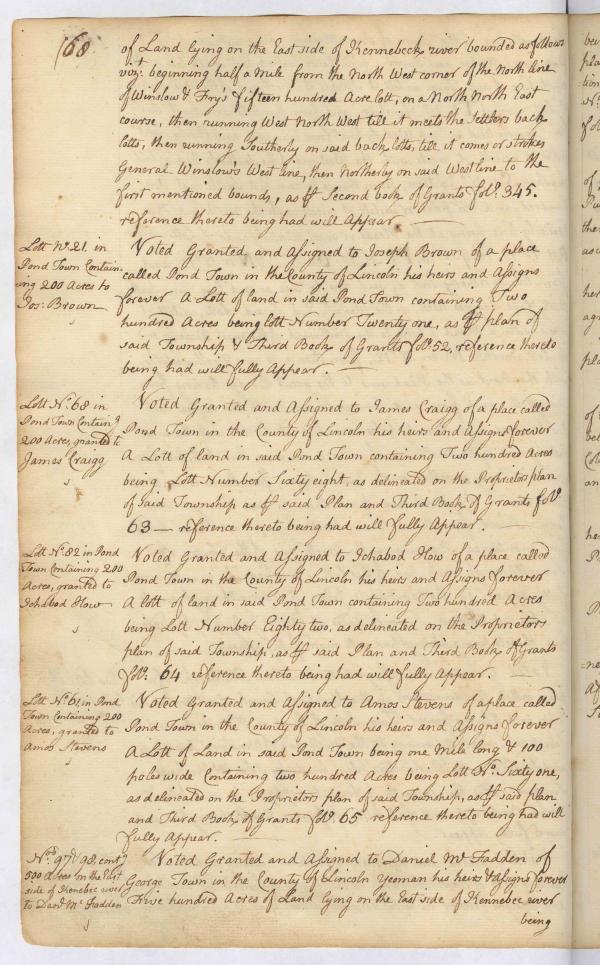 68
of Land lying on the East side of Kennebeck river bounded as follows
vizt beginning half a Mile from the North West corner of the North line
of Winslow & Fry's fifteen hundred Acre lott, on a North North East
course, then running West North West till it meets the Settlers back
lotts, then running Southerly on said back lotts, till it comes or strikes
General Winslow's West line, then Northerly on said West line to the
first mentioned bounds, as ⅌ Second book of Grants folo. 345.
reference thereto being had will Appear.
Lott No. 21 in
Pond Town Contain-
ing 200 Acres to
Jos: Brown
Voted Granted and Assigned to Joseph Brown of a place
called Pond Town in the County of Lincoln his heirs and Assigns
forever A Lott of land in said Pond Town containing Two
hundred Acres being lott Number Twenty one, as ⅌ plan of
said Township & Third Book of Grants folo. 52, reference thereto
being had will fully Appear.
Lott No. 68 in
Pond Town Containg
200 Acres, granted to
James Craigg
Voted Granted and Assigned to James Craigg of a place called
Pond Town in the County of Lincoln his heirs and Assigns forever
A Lott of land in said Pond Town containing Two hundred Acres
being Lott Number Sixty eight, as delineated on the Proprietors plan
of said Township as ⅌ said Plan and Third Book of Grants folo.
63 — reference thereto being had will fully Appear.
Lott No. 82 in Pond
Town Containing 200
Acres, granted to
Ichabod How
Voted Granted and Assigned to Ichabod How of a place called
Pond Town in the County of Lincoln his heirs and Assigns forever
A lott of land in said Pond Town containing Two hundred Acres
being Lott Number Eighty two, as delineated on the Proprietors
plan of said Township, as ⅌ said Plan and Third Book of Grants
folo. 64 reference thereto being had will fully Appear.
Lott No. 61, in Pond
Town Containing 200
Acres, granted to
Amos Stevens
Voted Granted and Assigned to Amos Stevens of a place called
Pond Town in the County of Lincoln his heirs and Assigns forever
A Lott of Land in said Pond Town being one Mile long & 100
poles wide Containing two hundred Acres being Lott No. Sixty one,
as delineated on the Proprietors plan of said Township, as ⅌ said plan
and Third Book of Grants folo. 65 reference thereto being had will
fully Appear.
Nos. 97 & 98, contg
500 Acres on the East
side of Kenebec river
to Danl. Mc Fadden
Voted Granted and Assigned to Daniel Mc Fadden of
George Town in the County of Lincoln yeoman his heirs & Assigns forever
Five hundred Acres of Land lying on the East side of Kennebec river
being